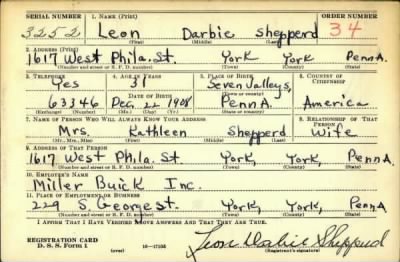 SERIAL NUMBER 1. NAME (Print) ORDER NUMBER
3252 Leon Darbie Shepperd 34
(First) (Middle) (Last)
2. ADDRESS (Print)
1617 West Phila. St. York York Penna
(Number and street or R. F. D. number) (Town) (County) (State)
3. TELEPHONE 4. AGE IN YEARS 5. PLACE OF BIRTH 6. COUNTRY OF CITIZENSHIP
Yes 31 Seven Valleys,
DATE OF BIRTH (Town or county)
63346 Dec. 22 1908 Penna. America
(Exchange) (Number) (Mo.) (Day) (Yr.) (State or country)
7. NAME OF PERSON WHO WILL ALWAYS KNOW YOUR ADDRESS 8. RELATIONSHIP OF THAT PERSON
Mrs. Kathleen Shepperd Wife
(Mr., Mrs., Miss) (First) (Middle) (Last)
9. ADDRESS OF THAT PERSON
1617 West Phila. St York, York, Penna
(Number and street or R. F. D. number) (Town) (County) (State)
10. EMPLOYER'S NAME
Miller Buick Inc.
11. PLACE OF EMPLOYMENT OR BUSINESS
229 S. George St. York, York, Penna.
(Number and street or R. F. D. number) (Town) (County) (State)
I AFFIRM THAT I HAVE VERIFIED ABOVE ANSWERS AND THAT THEY ARE TRUE.
REGISTRATION CARD
D. S. S. Form 1 (over) 16—17105 Leon Darbie Shepperd
(Registrant's signature)